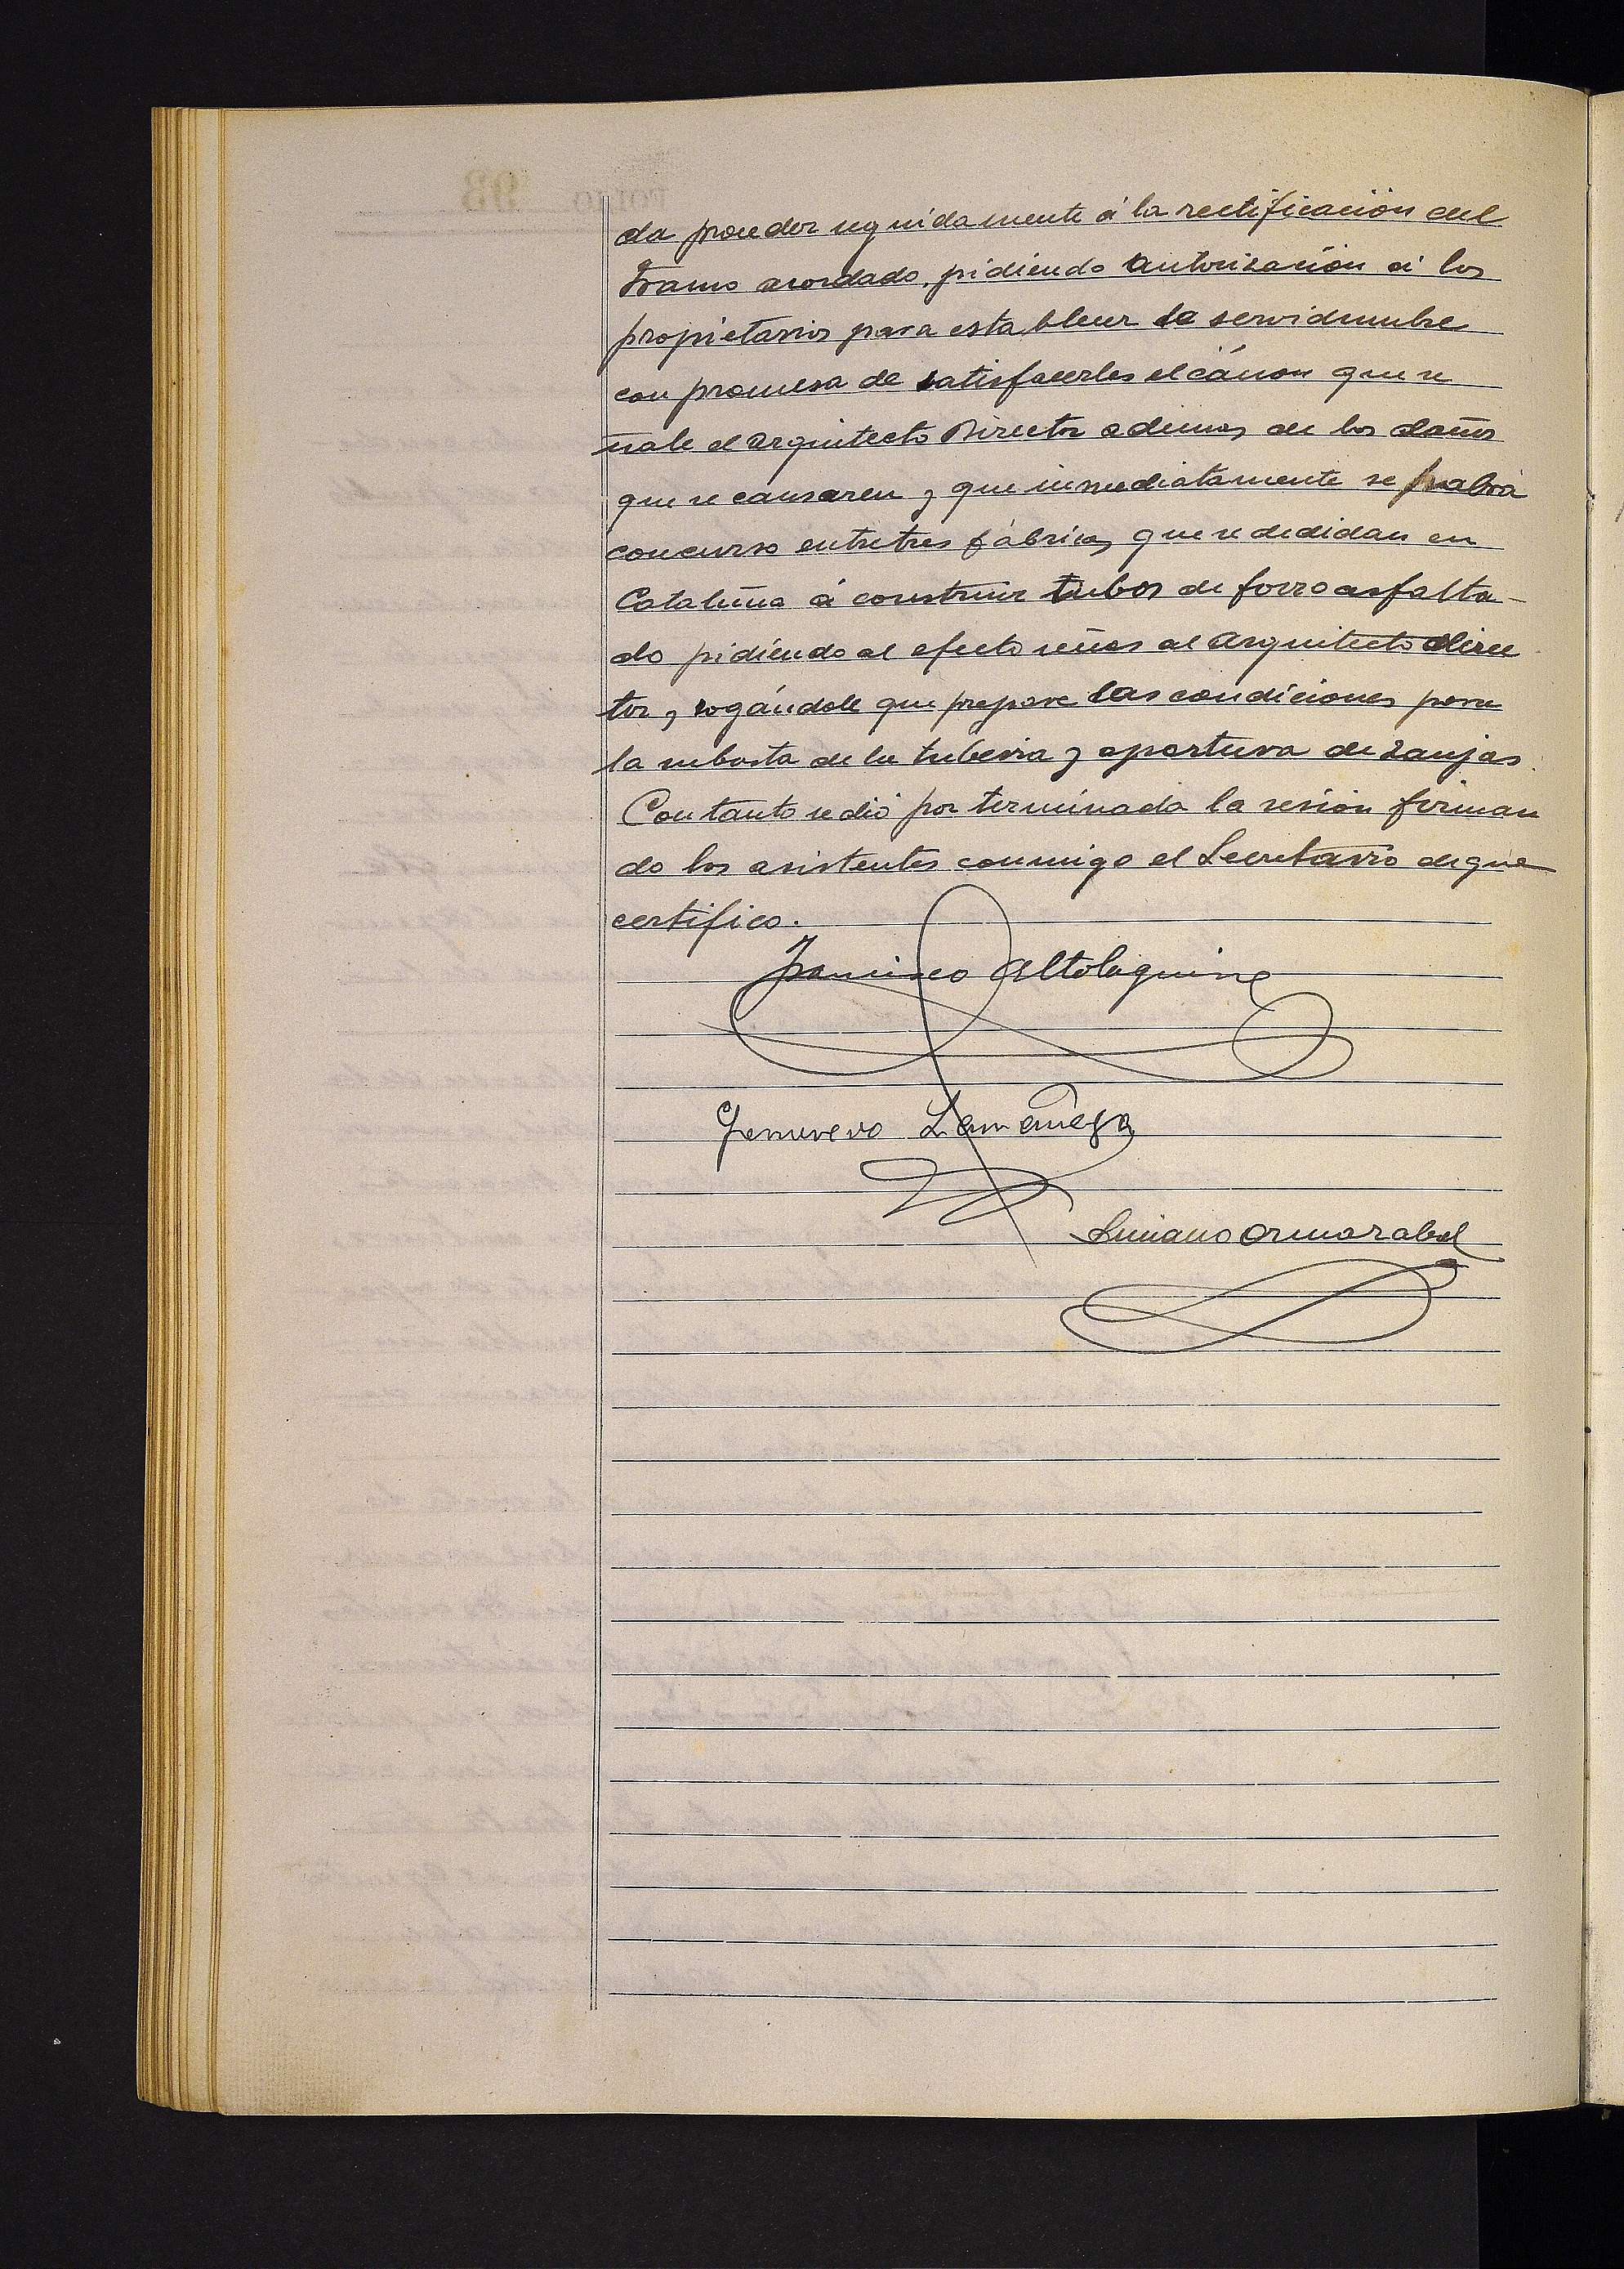 da proceder seguidamente á la rectificación del
tramo acordado, pidiendo autorización á los
propietarios para establecer la servidumbre
con promesa de satisfacerles el cánon que se
ñale el arquitecto Director ademas de los daños
que se causaren y que inmediatamente se habra
concurso entre tres fábricas que se dedidan en
Cataluña á construir tubos de forro asfalta-
do pidiendo al efecto señas al arquitecto direc
tor, y rogándole que prepare las condiciones para
la subasta de la tuberia y apertura de zanjas.
Con tanto se dió por terminada la sesión firman
do los asistentes conmigo el Secretario de que
certifico.
Francisco Altolaguirre
Genaro
Luciano Ormazabal
FOLIO 98